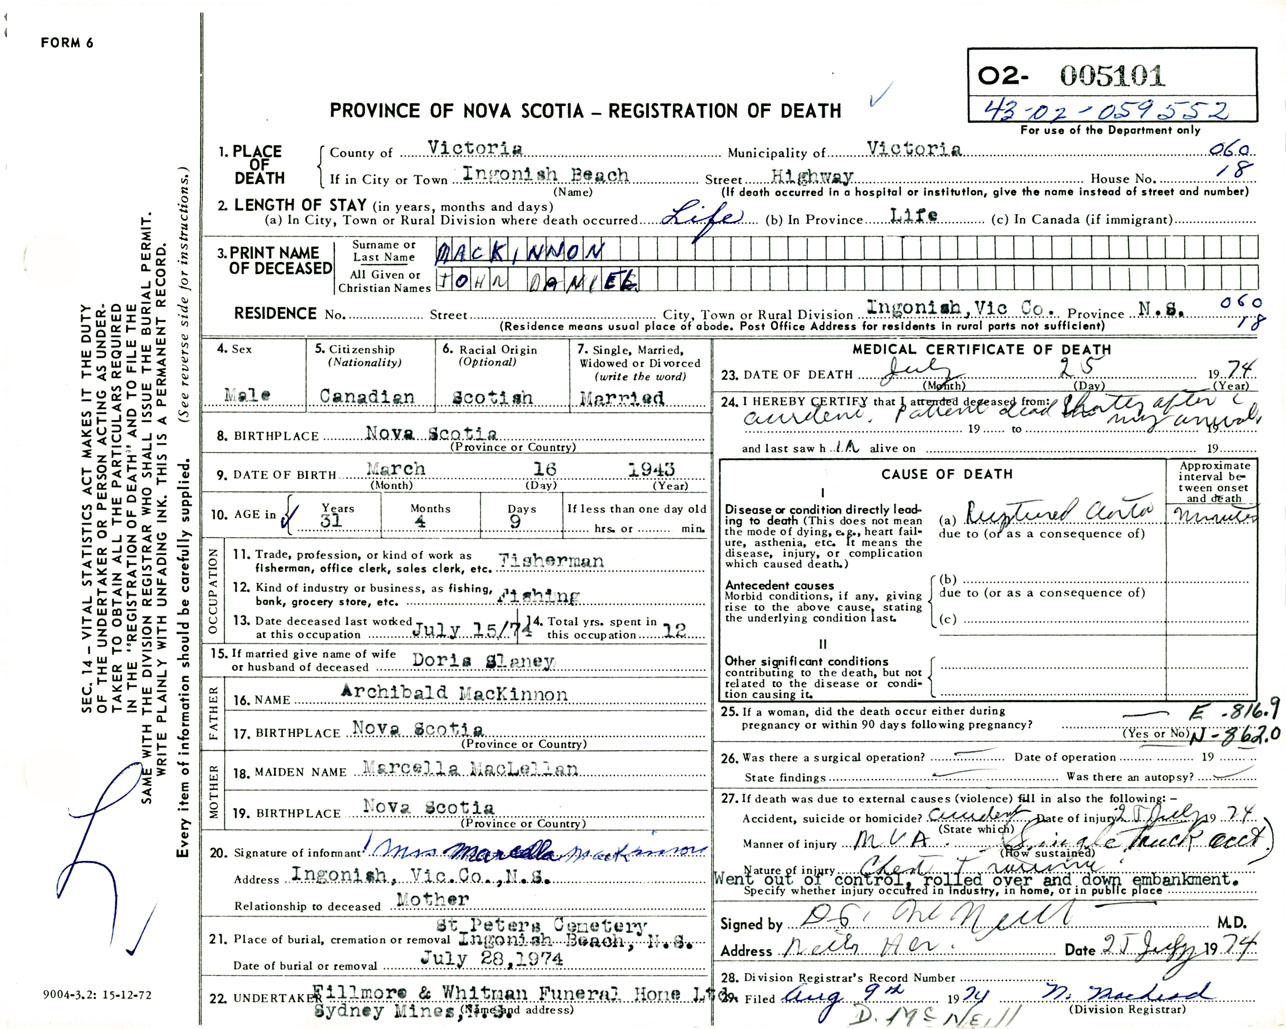 FORM 6
O2- 005101
43-02-059552
For use of the Department only
PROVINCE OF NOVA SCOTIA – REGISTRATION OF DEATH
SEC. 14 – VITAL STATISTICS ACT MAKES IT THE DUTY
OF THE UNDERTAKER OR PERSON ACTING AS UNDER-
TAKER TO OBTAIN ALL THE PARTICULARS REQUIRED
IN THE "REGISTRATION OF DEATH" AND TO FILE THE
SAME WITH THE DIVISION REGISTRAR WHO SHALL ISSUE THE BURIAL PERMIT.
WRITE PLAINLY WITH UNFADING INK. THIS IS A PERMANENT RECORD.
Every item of information should be carefully supplied. (See reverse side for instructions.)
1. PLACE OF DEATH
County of Victoria Municipality of Victoria 060
If in City or Town Ingonish Beach Street Highway House No. 18
(Name) (If death occurred in a hospital or institution, give the name instead of street and number)
2. LENGTH OF STAY (in years, months and days)
(a) In City, Town or Rural Division where death occurred Life (b) In Province Life (c) In Canada (if immigrant)
3. PRINT NAME OF DECEASED
Surname or Last Name MACKINNON
All Given or Christian Names JOHN DANIEL
RESIDENCE No. Street City, Town or Rural Division Ingonish, Vic Co. Province N.S. 060
(Residence means usual place of abode. Post Office Address for residents in rural parts not sufficient) 18
4. Sex Male
5. Citizenship (Nationality) Canadian
6. Racial Origin (Optional) Scotish
7. Single, Married, Widowed or Divorced (write the word) Married
8. BIRTHPLACE Nova Scotia
(Province or Country)
9. DATE OF BIRTH March 16 1943
(Month) (Day) (Year)
10. AGE in Years 31 Months 4 Days 9 If less than one day old hrs. or min.
OCCUPATION
11. Trade, profession, or kind of work as fisherman, office clerk, sales clerk, etc. Fisherman
12. Kind of industry or business, as fishing, bank, grocery store, etc. Fishing
13. Date deceased last worked at this occupation July 15/74
14. Total yrs. spent in this occupation 12
15. If married give name of wife or husband of deceased Doris Slaney
FATHER
16. NAME Archibald MacKinnon
17. BIRTHPLACE Nova Scotia
(Province or Country)
MOTHER
18. MAIDEN NAME Marcella MacLellan
19. BIRTHPLACE Nova Scotia
(Province or Country)
20. Signature of informant Mrs Marcella Mackinnon
Address Ingonish, Vic.Co.,N.S.
Relationship to deceased Mother
St Peters Cemetery
21. Place of burial, cremation or removal Ingonish Beach, N.S.
Date of burial or removal July 28,1974
22. UNDERTAKER Fillmore & Whitman Funeral Home Ltd.
Sydney Mines,N.S. (Name and address)
MEDICAL CERTIFICATE OF DEATH
23. DATE OF DEATH July 25 1974
(Month) (Day) (Year)
24. I HEREBY CERTIFY that I attended deceased from:
Patient dead shortly after
my arrival
19 to 19
and last saw h im alive on 19
CAUSE OF DEATH
Approximate interval between onset and death
I
Disease or condition directly leading to death (This does not mean the mode of dying, e.g., heart failure, asthenia, etc. It means the disease, injury, or complication which caused death.)
(a) Ruptured Aorta Minutes
due to (or as a consequence of)
Antecedent causes
Morbid conditions, if any, giving rise to the above cause, stating the underlying condition last.
(b)
due to (or as a consequence of)
(c)
II
Other significant conditions
contributing to the death, but not related to the disease or condition causing it.
25. If a woman, did the death occur either during E -816.9
pregnancy or within 90 days following pregnancy? (Yes or No) N-862.0
26. Was there a surgical operation? Date of operation 19
State findings Was there an autopsy?
27. If death was due to external causes (violence) fill in also the following: –
Accident, suicide or homicide? accident Date of injury 25 July 1974
(State which)
Manner of injury MVA. (Single truck acct)
(How sustained)
Nature of injury Chest Trauma
Went out of control, rolled over and down embankment.
Specify whether injury occurred in industry, in home, or in public place
Signed by McNeill M.D.
Address Neils Har. Date 25 July 1974
28. Division Registrar's Record Number
29. Filed Aug 9th 1974 N. MacLeod
(Division Registrar)
D. McNEILL
9004-3.2: 15-12-72